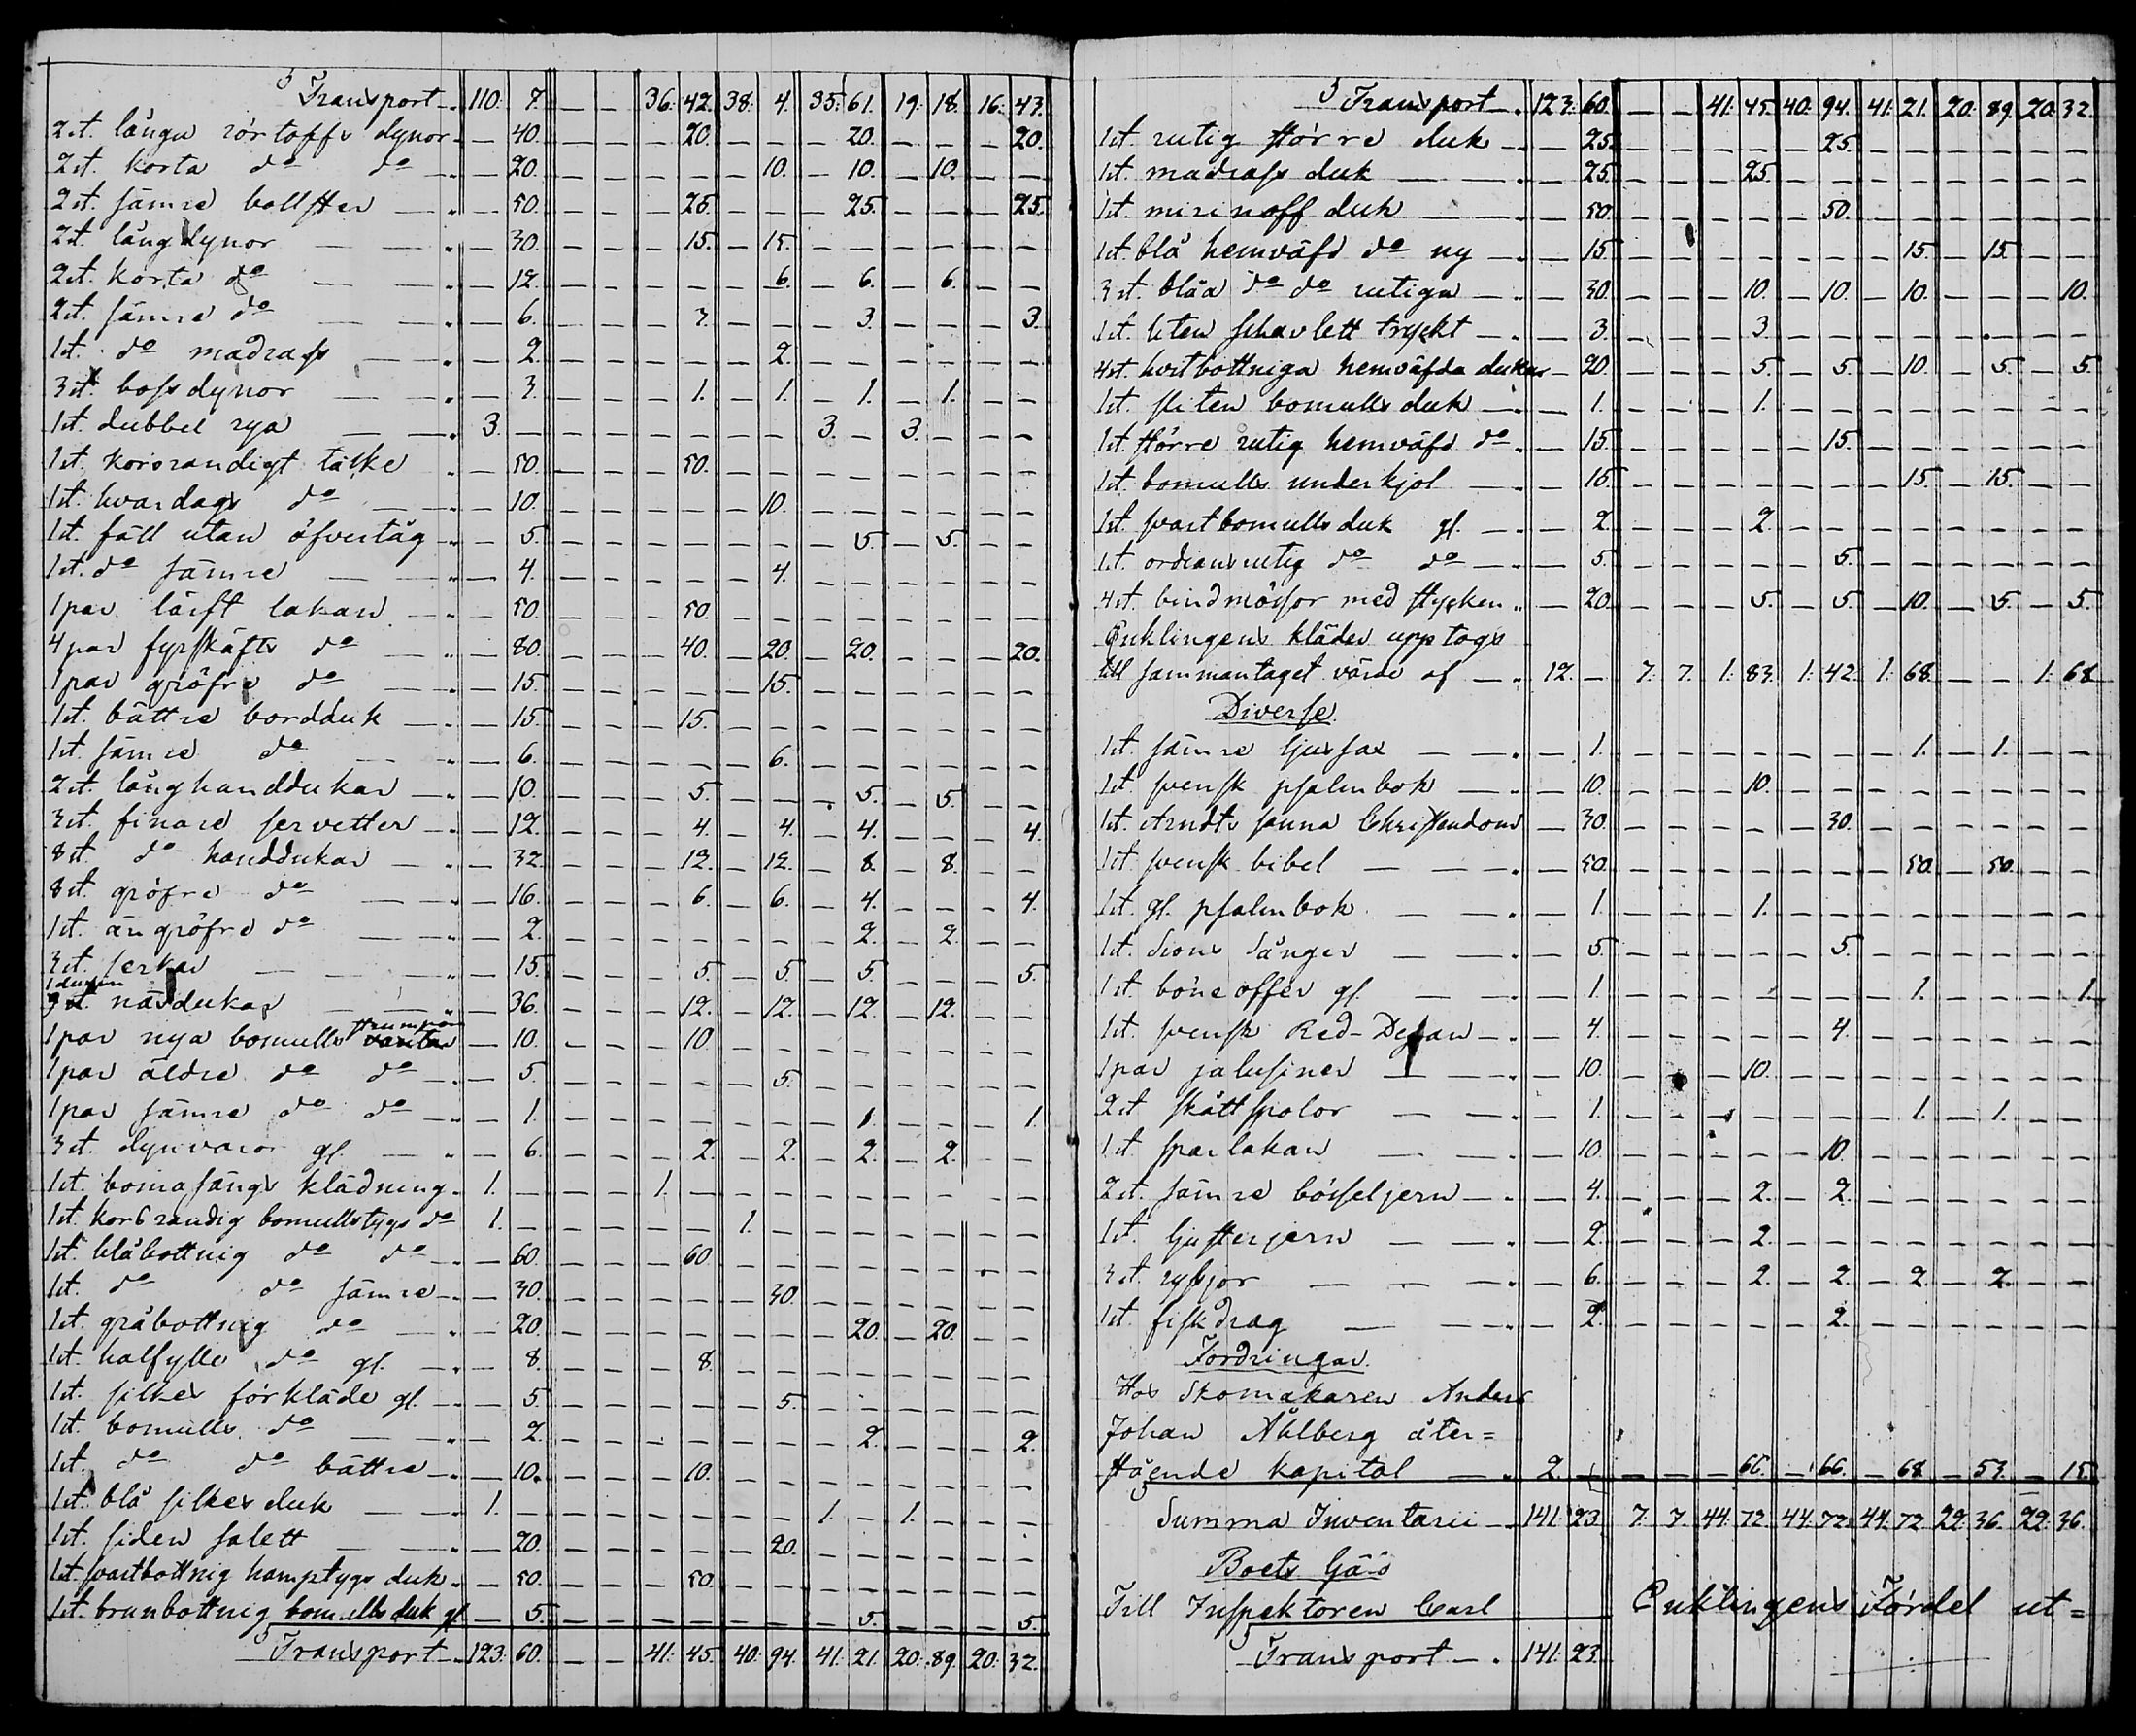 Transport 110: 7. — — 36: 42. 38: 4. 35: 61. 19: 18. 16: 43.
2 st. långa rörtoffs dynor — 40. — — — 20. — — — 20. — — — 20.
2 st. korta do do — 20. — — — — — 10. — 10. — 10. — —
2 st. sämre bollster — 50. — — — 25. — — — 25. — — — 25.
2 st. långdynor — 30. — — — 15. — 15. — — — — — —
2 st. korta do — 12. — — — — — 6. — 6. — 6. — —
2 st. sämre do — 6. — — — 3. — — — 3. — — — 3.
1 st. do madrass — 2. — — — — — 2. — — — — — —
3 st. bossdynor — 3. — — — 1. — 1. — 1. — 1. — —
1 st. dubbel rya 3. — — — — — — — 3. — 3. — — —
1 st. korsrandigt täcke — 50. — — — 50. — — — — — — — —
1 st. hvardags do — 10. — — — — — 10. — — — — — —
1 st. fäll utan öfvertåg — 5. — — — — — — — 5. — 5. — —
1 st. do sämre — 4. — — — — — 4. — — — — — —
1 par lärft lakan — 50. — — — 50. — — — — — — — —
4 par fyrskäfts do — 80. — — — 40. — 20. — 20. — — — 20.
1 par gröfre do — 15. — — — — — 15. — — — — — —
1 st. bättre bordduk — 15. — — — 15. — — — — — — — —
1 st. sämre do — 6. — — — — — 6. — — — — — —
2 st. långhanddukar — 10. — — — 5. — — — 5. — 5. — —
3 st. finare servetter — 12. — — — 4. — 4. — 4. — — — 4.
8 st. do handdukar — 32. — — — 12. — 12. — 8. — 8. — —
8 st. gröfre do — 16. — — — 6. — 6. — 4. — — — 4.
1 st. än gröfre do — 2. — — — — — — — 2. — 2. — —
3 st. serkar — 15. — — — 5. — 5. — 5. — — — 5.
1 dussin
näsdukar — 36. — — — 12. — 12. — 12. — 12. — —
1 par nya bomulls strumpor vantar — 10. — — — 10. — — — — — — — —
1 par äldre do do — 5. — — — — — 5. — — — — — —
1 par sämre do do — 1. — — — — — — — 1. — — — 1.
3 st. dynvaror gl. — 6. — — — 2. — 2. — 2. — 2. — —
1 st. klädning 1. — — — 1. — — — — — — — — —
1 st. korsrandig bomullstygs do 1. — — — — — 1. — — — — — — —
1 st. blåbottnig do do — 60. — — — 60. — — — — — — — —
1 st. do do sämre — 30. — — — — — 30. — — — — — —
1 st. gråbottnig do — 20. — — — — — — — 20. — 20. — —
1 st. halfylle do gl. — 8. — — — 8. — — — — — — — —
1 st. silkes förkläde gl. — 5. — — — — — 5. — — — — — —
1 st. bomulls do — 2. — — — — — — — 2. — — — 2.
1 st. do do bättre — 10. — — — 10. — — — — — — — —
1 st. blå silkes duk 1. — — — — — — — 1. — 1. — — —
1 st. siden salett — 20. — — — — — 20. — — — — — —
1 st. svartbottnig hamptygs duk — 50. — — — 50. — — — — — — — —
1 st. brunbottnig bomulls duk gl — 5. — — — — — — — 5. — — — 5.
Transport 123: 60. — — 41: 45. 40: 94. 41: 21. 20: 89. 20: 32.
Transport 123: 60. — — 41: 45. 40: 94. 41: 21. 20: 89. 20: 32.
1 st. rutig större duk — 25. — — — — — 25. — — — — — —
1 st. madrass duk — 25. — — — 25. — — — — — — — —
1 st. mirinoff duk — 50. — — — — — 50. — — — — — —
1 st. blå hemväfd do ny — 15. — — — — — — — 15. — 15. — —
3 st. blåa do do rutiga — 30. — — — 10. — 10. — 10. — — — 10.
1 st. liten schavlett tryckt — 3. — — — 3. — — — — — — — —
4 st. hvitbottniga hemväfda dukar — 20. — — — 5. — 5. — 10. — 5. — 5.
1 st. sliten bomulls duk — 1. — — — 1. — — — — — — — —
1 st. större rutig hemväfd do — 15. — — — — — 15. — — — — — —
1 st. bomulls underkjol — 15. — — — — — — — 15. — 15. — —
1 st. svart bomulls duk gl. — 2. — — — 2. — — — — — — — —
1 st. rutig do do — 5. — — — — — 5. — — — — — —
4 st. bindmössor med stycken — 20. — — — 5. — 5. — 10. — 5. — 5.
Enklingens kläder upptogs
till sammantaget värde af 12. — 7. 7. 1: 83. 1: 42. 1: 68. — — 1: 68
Diverse
1 st. sämre ljussax — 1. — — — — — — — 1. — 1. — —
1 st. svensk psalmbok — 10. — — — 10. — — — — — — — —
1 st. Arndts sanna Christendom — 30. — — — — — 30. — — — — — —
1 st. svensk bibel — 50. — — — — — — — 50. — 50. — —
1 st. gl. psalmbok — 1. — — — 1. — — — — — — — —
1 st. Sions Sånger — 5. — — — — — 5. — — — — — —
1 st. böneoffer gl. — 1. — — — — — — — 1. — — — 1.
1 st. svensk Red-Dejan — 4. — — — — — 4. — — — — — —
1 par jalusiner — 10. — — — 10. — — — — — — — —
2 st skåttspolor — 1. — — — — — — — 1. — 1. — —
1 st. sparlakan — 10. — — — — — 10. — — — — — —
2 st. sämre bösseljern — 4. — — — 2. — 2. — — — — — —
1 st. ljusterjern — 2. — — — 2. — — — — — — — —
3 st. ryssjor — 6. — — — 2. — 2. — 2. — 2. — —
1 st. fiskdrag — 2. — — — — — 2. — — — — — —
Fordringar
Hos Skomakaren Anders
Johan Åhlberg åter=
stående kapital 2. — — — — 66. — 66. — 68. — 53. — 15.
Summa Inventarii 141: 23. 7. 7. 44: 72. 44: 72. 44: 72. 22: 36. 22: 36.
Boets Gäld
Till Inspektoren Carl Enklingens Fördel ut=
Transport 141: 23.